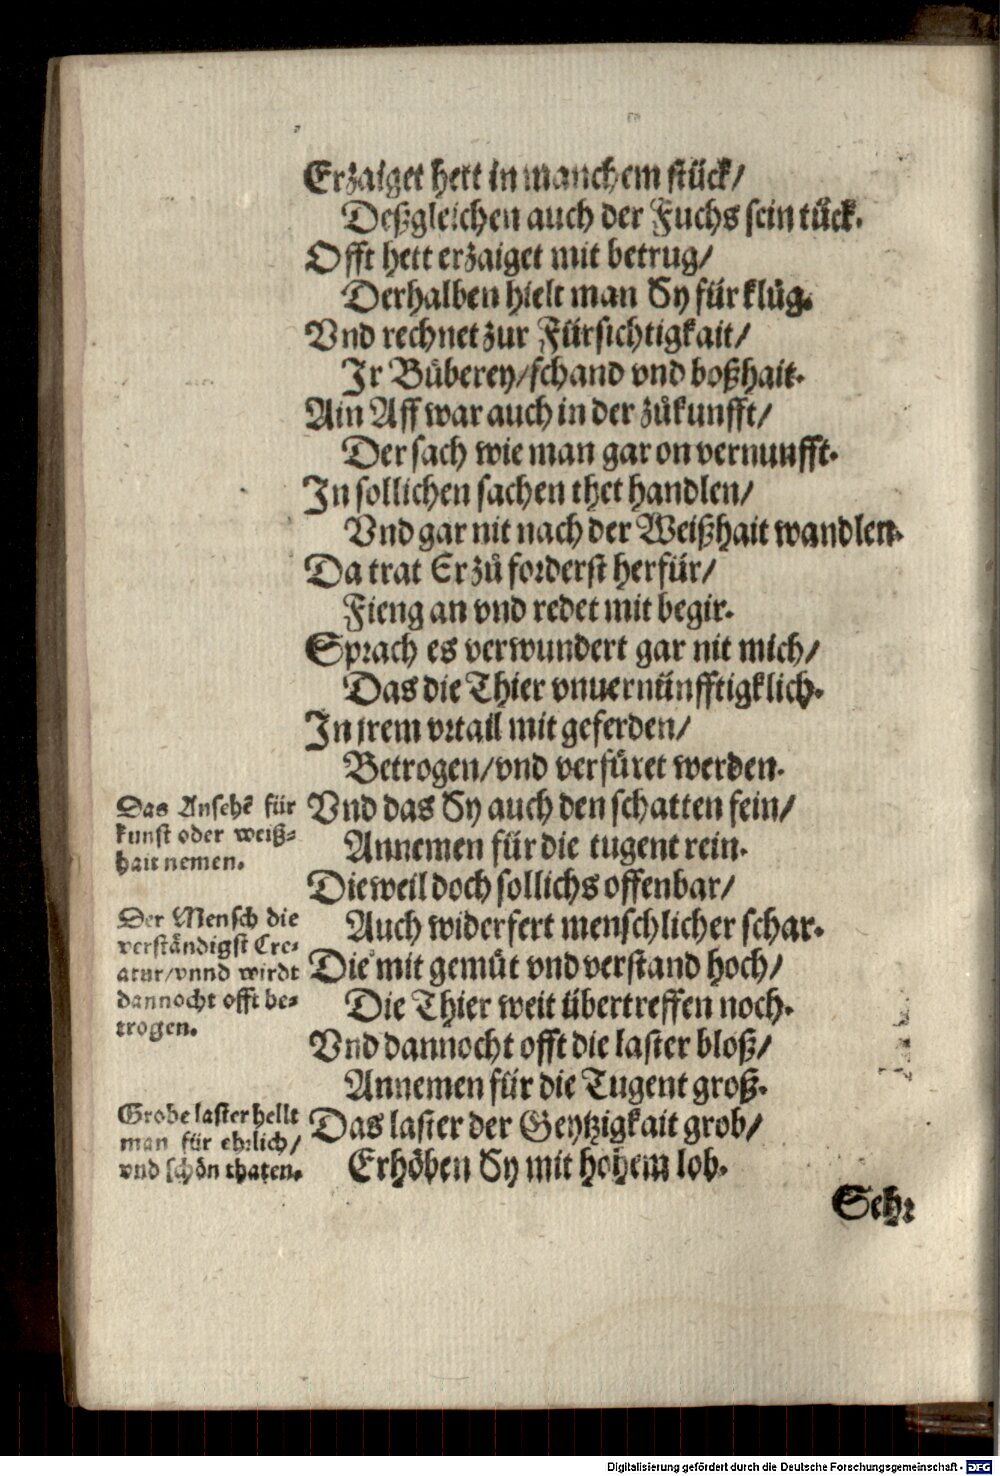 Erzaiget hett in manchem stück/
Deßgleichen auch der Fuchs sein tück.
Offt hett erzaiget mit betrug/
Derhalben hielt man Sy für klůg.
Vnd rechnet zur Fürsichtigkait/
Jr Bůberey/schand vnd boßhait.
Ain Aff war auch in der zůkunfft/
Der sach wie man gar on vernunfft.
Jn sollichen sachen thet handlen/
Vnd gar nit nach der Weißhait wandlen.
Da trat Er zů forderst herfür/
Fieng an vnd redet mit begir.
Sprach es verwundert gar nit mich/
Das die Thier vnuernünfftigklich.
Jn jrem vrtail mit geferden/
Betrogen/vnd verfüret werden.
Das Ansehē für
kunst oder weiß-
hait nemen.
Vnd das Sy auch den schatten fein/
Annemen für die tugent rein.
Dieweil doch sollichs offenbar/
Der Mensch die
verständigst Cre-
atur/vnnd wirdt
dannocht offt be-
trogen.
Auch widerfert menschlicher schar.
Die mit gemüt vnd verstand hoch/
Die Thier weit übertreffen noch.
Vnd dannocht offt die laster bloß/
Annemen für die Tugent groß.
Grobe laster hellt
man für ehrlich/
vnd schön thaten.
Das laster der Geytzigkait grob/
Erhöben Sy mit hohem lob.
Sehr
Digitalisierung gefördert durch die Deutsche Forschungsgemeinschaft - DFG